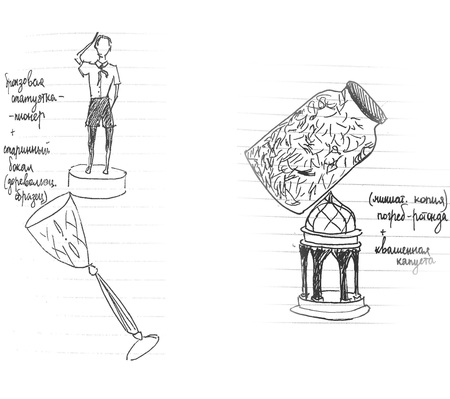 бронзовая
статуэтка-
-пионер
+
старинный
бокал
(дореволюц.
образец)
(миниат. копия)
погреб-ротонда
+
квашенная
капуста